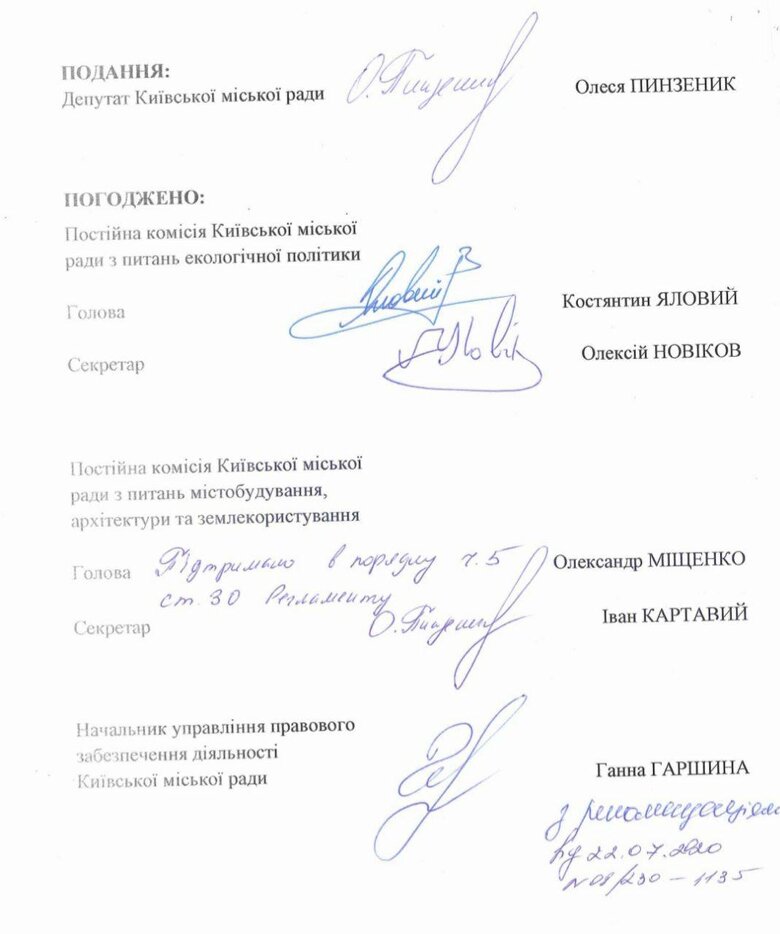 ПОДАННЯ:
Депутат Київської міської ради О. Пинзеник Олеся ПИНЗЕНИК
ПОГОДЖЕНО:
Постійна комісія Київської міської
ради з питань екологічної політики
Голова Яловий Костянтин ЯЛОВИЙ
Секретар Новік Олексій НОВІКОВ
Постійна комісія Київської міської
ради з питань містобудування,
архітектури та землекористування
Голова Підтримано в порядку ч.5 Олександр МІЩЕНКО
ст. 30 Регламенту
Секретар О. Пинзеник Іван КАРТАВИЙ
Начальник управління правового
забезпечення діяльності
Київської міської ради Ганна ГАРШИНА
з рекомендаціями
від 22.07.2020
№08/230-1135